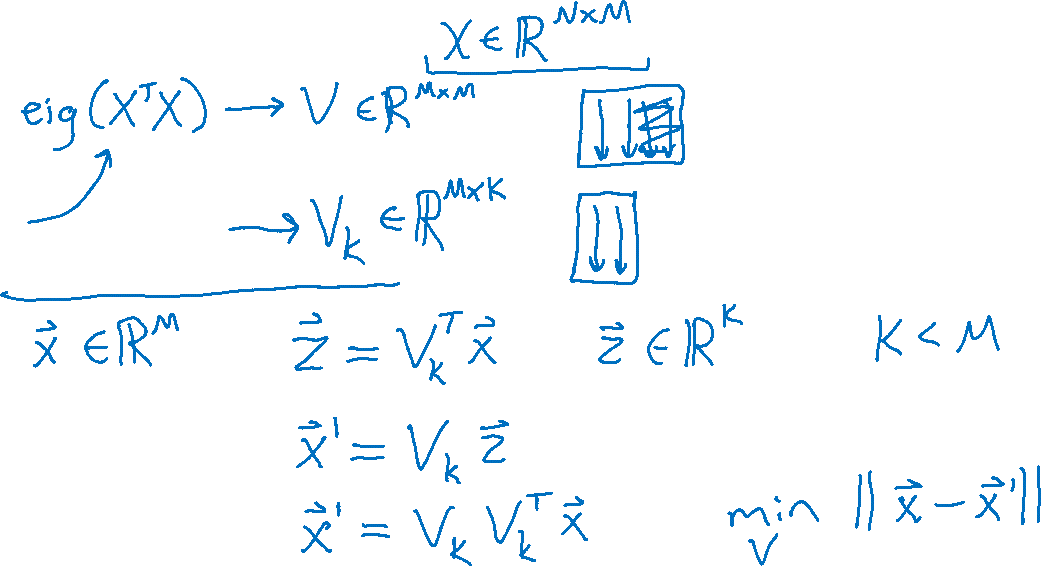 X ∈ ℝ^{N×M}
eig(XᵀX) → V ∈ ℝ^{M×M}
→ V_k ∈ ℝ^{M×K}
x⃗ ∈ ℝ^M z⃗ = V_k^T x⃗ z⃗ ∈ ℝ^K K < M
x⃗' = V_k z⃗
x⃗' = V_k V_k^T x⃗ min_V ‖x⃗ − x⃗'‖